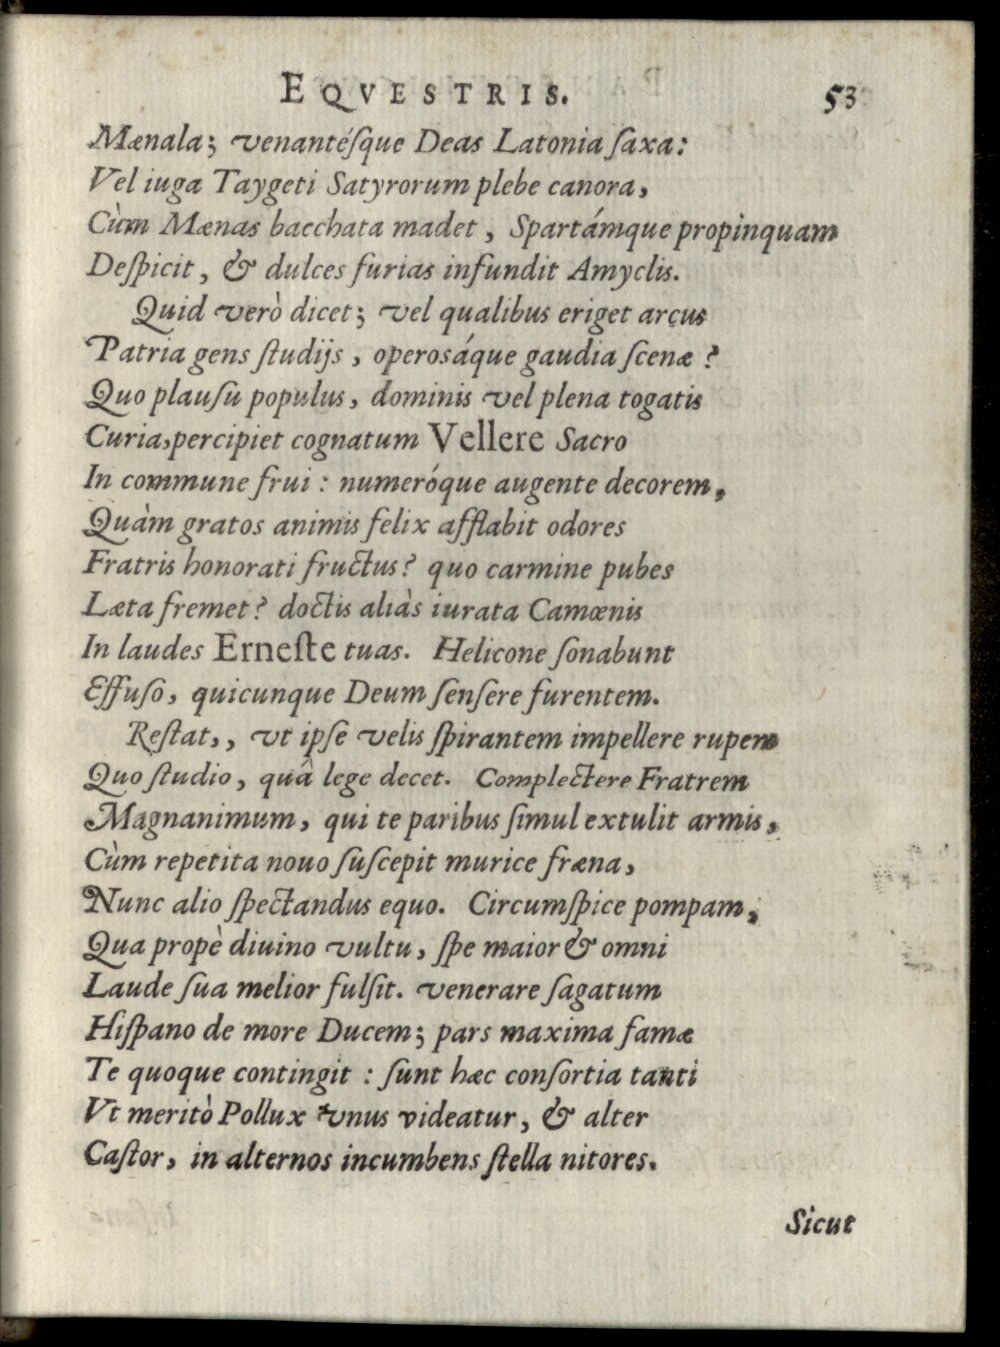 EQVESTRIS. 53
Mænala; venantésque Deas Latonia saxa:
Vel iuga Taygeti Satyrorum plebe canora,
Cùm Mænas bacchata madet, Spartámque propinquam
Despicit, & dulces furias infundit Amyclis.
Quid verò dicet; vel qualibus eriget arcus
Patria gens studijs, operosáque gaudia scenæ?
Quo plausu populus, dominis vel plena togatis
Curia, percipiet cognatum Vellere Sacro
In commune frui: numeróque augente decorem,
Quàm gratos animis felix afflabit odores
Fratris honorati fructus? quo carmine pubes
Læta fremet? doctis aliàs iurata Camœnis
In laudes Erneste tuas. Helicone sonabunt
Effuso, quicunque Deum sensere furentem.
Restat,, vt ipse velis spirantem impellere rupem
Quo studio, quâ lege decet. Complectere Fratrem
Magnanimum, qui te paribus simul extulit armis,
Cùm repetita nouo suscepit murice fræna,
Nunc alio spectandus equo. Circumspice pompam,
Qua propè diuino vultu, spe maior & omni
Laude sua melior fulsit. venerare sagatum
Hispano de more Ducem; pars maxima famæ
Te quoque contingit: sunt hæc consortia tanti
Vt meritò Pollux vnus videatur, & alter
Castor, in alternos incumbens stella nitores.
Sicut